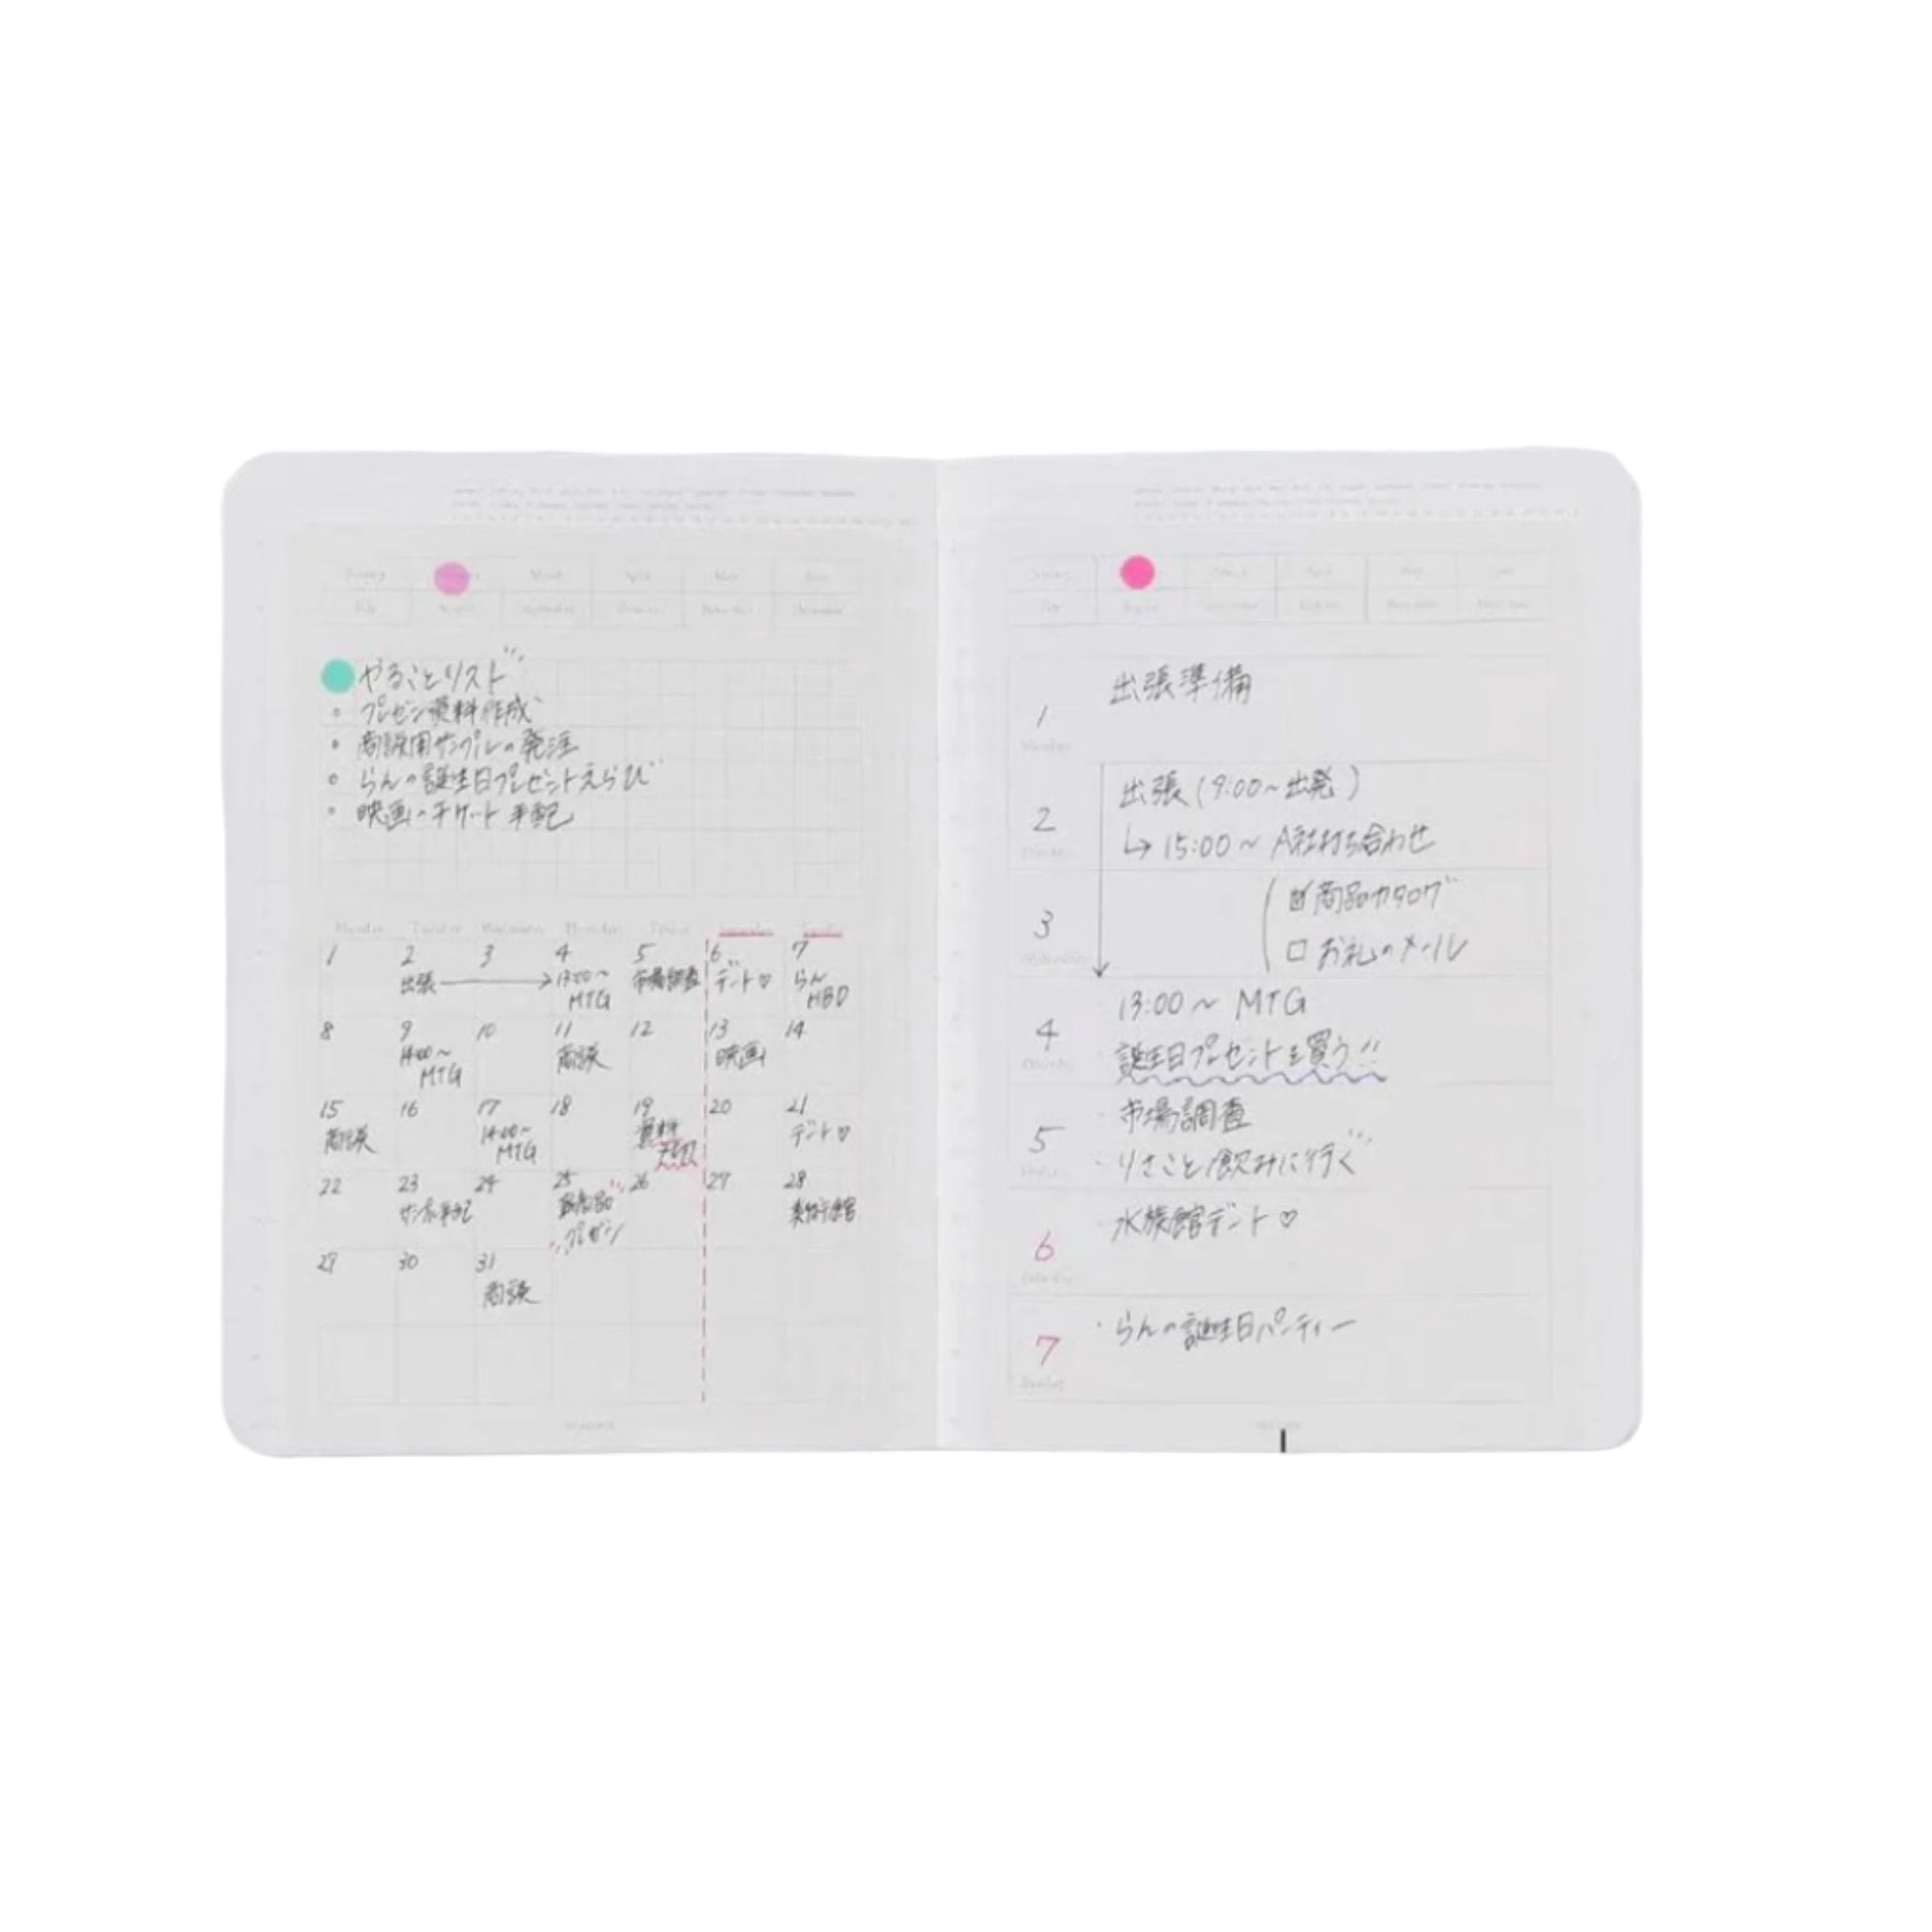 やることリスト
プレゼン資料作成
商談用サンプルの発注
らんの誕生日プレゼントえらび
映画のチケット手配
Monday Tuesday Wednesday Thursday Friday Saturday Sunday
1 2 3 4 5 6 7
出張 → 13:00〜 MTG 市場調査 デート♡ らん HBD
8 9 10 11 12 13 14
14:00〜 MTG 商談 映画
15 16 17 18 19 20 21
商談 14:00〜 MTG 資料 〆切 デート♡
22 23 24 25 26 27 28
プレゼン
29 30 31
商談
出張準備
1
出張(9:00〜出発)
2
↳ 15:00〜 A社打ち合わせ
☑ 商品カタログ
3
□ お礼のメール
13:00〜 MTG
4
誕生日プレゼントを買う!!
・市場調査
5
・りさこと飲みに行く
水族館デート♡
6
・らんの誕生日パーティー
7